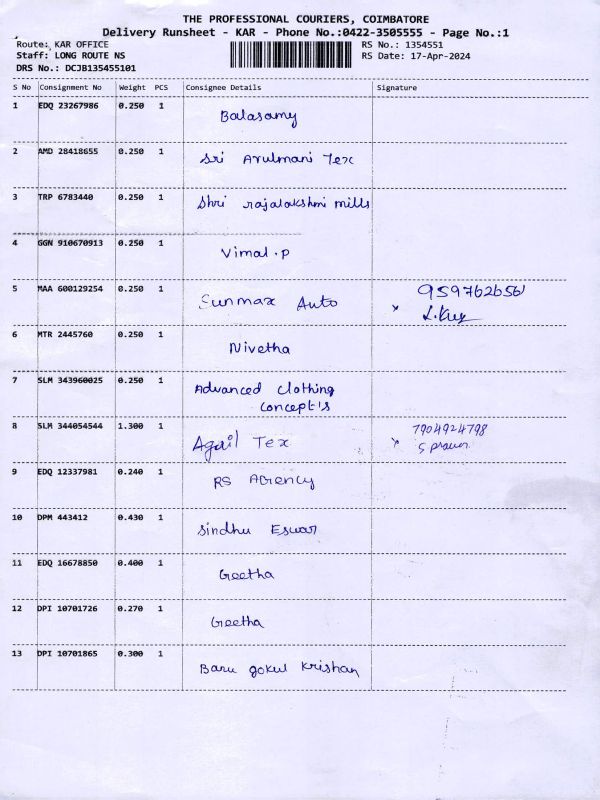 THE PROFESSIONAL COURIERS, COIMBATORE
Delivery Runsheet - KAR - Phone No.:0422-3505555 - Page No.:1
Route: KAR OFFICE RS No.: 1354551
Staff: LONG ROUTE NS RS Date: 17-Apr-2024
DRS No.: DCJB135455101
S No Consignment No Weight PCS Consignee Details Signature
1 EDQ 23267986 0.250 1 Balasamy
2 AMD 28418655 0.250 1 Sri Arulmani Tex
3 TRP 6783440 0.250 1 Shri rajalakshmi mills
4 GGN 910670913 0.250 1 Vimal.p
5 MAA 600129254 0.250 1 Sunmax Auto x
6 MTR 2445760 0.250 1 Nivetha
7 SLM 343960025 0.250 1 Advanced clothing
concept's
8 SLM 344054544 1.300 1 Tex x 7904924798
9 EDQ 12337981 0.240 1 RS AGency
10 DPM 443412 0.430 1 Sindhu Eswar
11 EDQ 16678850 0.400 1 Geetha
12 DPI 10701726 0.270 1 Geetha
13 DPI 10701865 0.300 1 Banu gokul krishan